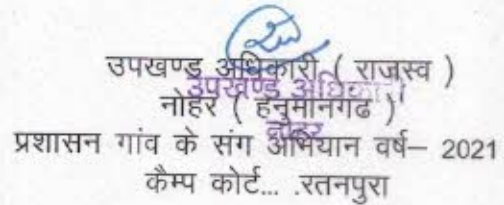 उपखण्ड अधिकारी ( राजस्व )
उपखण्ड अधिकारी
नोहर ( हनुमानगढ )
नोहर
प्रशासन गांव के संग अभियान वर्ष– 2021
कैम्प कोर्ट... .रतनपुरा